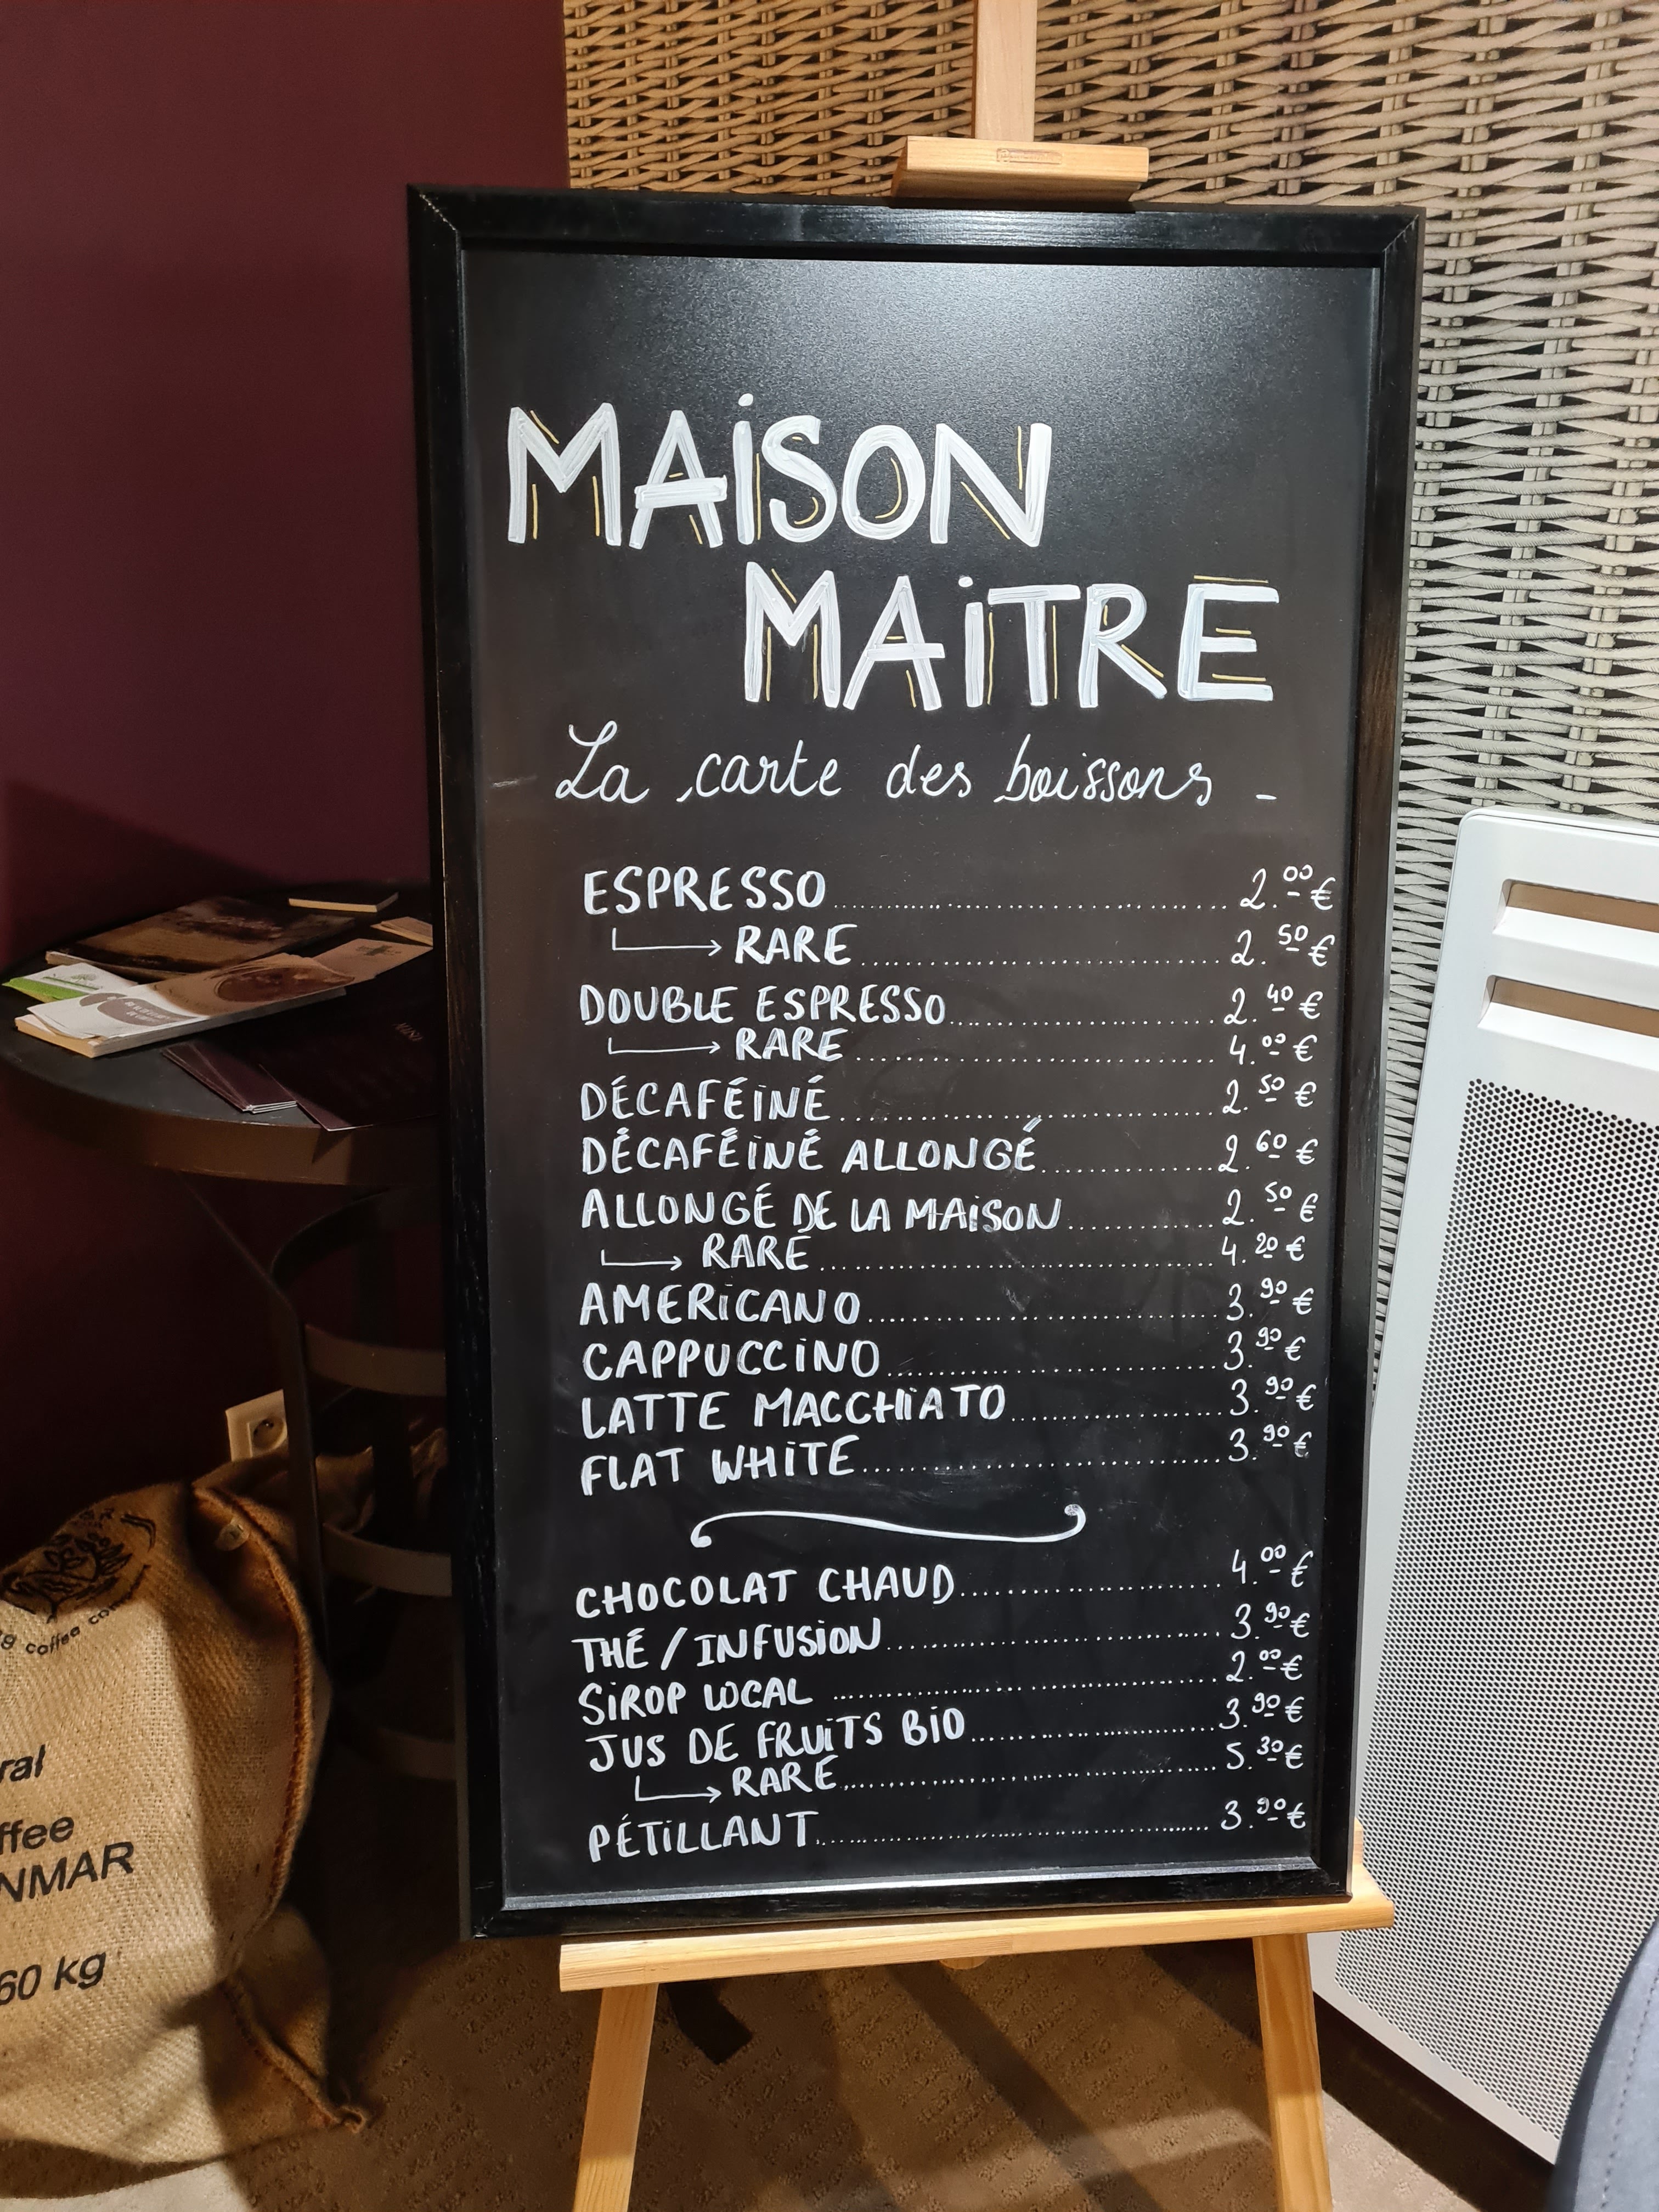 MAiSON
MAiTRE
La carte des boissons -
ESPRESSO 2.00€
RARE 2.50€
DOUBLE ESPRESSO 2.40€
RARE 4.00€
DÉCAFÉINÉ 2.50€
DÉCAFÉINÉ ALLONGÉ 2.60€
ALLONGÉ DE LA MAISON 2.50€
RARE 4.20€
AMERICANO 3.90€
CAPPUCCINO 3.90€
LATTE MACCHIATO 3.90€
FLAT WHITE 3.90€
CHOCOLAT CHAUD 4.00€
THÉ / INFUSION 3.90€
SIROP LOCAL 2.00€
JUS DE FRUITS BIO 3.90€
RARE 5.30€
PÉTILLANT 3.90€
coffee
ral
ffee
NMAR
60 kg